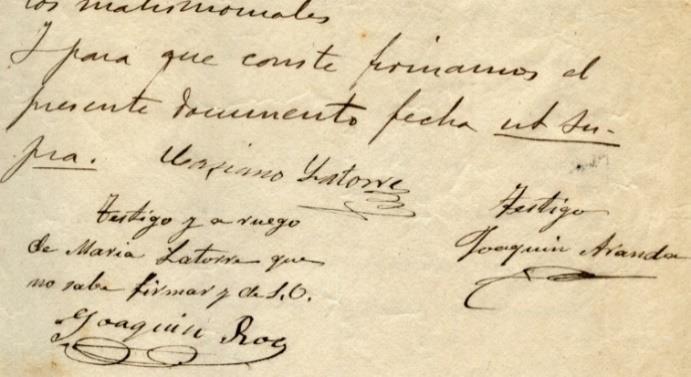 los matrimoniales
Y para que conste firmamos el
presente documento fecha ut su-
pra. Mariano Latorre
Testigo y a ruego
de Maria Latorre que
no sabe firmar y de S.O.
Joaquin Roy
Testigo
Joaquin Aranda